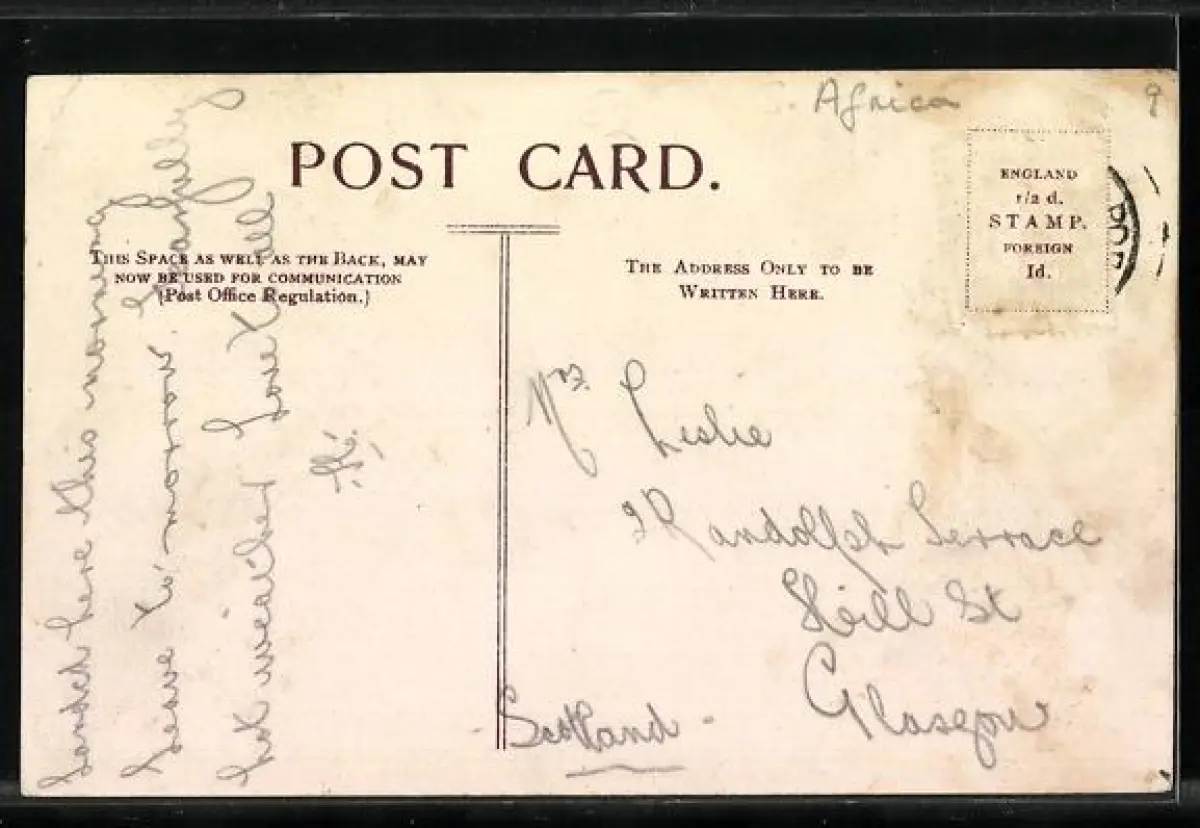 Africa 9
POST CARD.
THIS SPACE AS WELL AS THE BACK, MAY
NOW BE USED FOR COMMUNICATION
(Post Office Regulation.)
THE ADDRESS ONLY TO BE
WRITTEN HERE.
ENGLAND
1/2 d.
STAMP.
FOREIGN
1d.
Landed here this morning
Leave to'morrow
hot weather Love to all
Mrs Leslie
2 Randolph Terrace
Hill St
Glasgow
Scotland